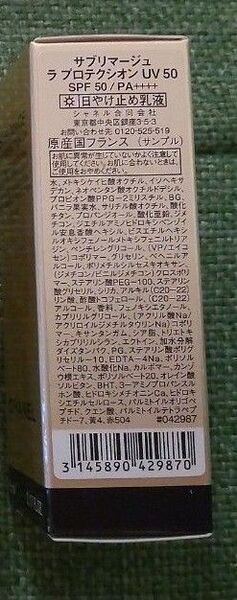 サブリマージュ
ラ プロテクシオン UV 50
SPF 50/PA++++
日やけ止め乳液
シャネル合同会社
東京都中央区銀座3-5-3
お問い合わせ先 0120-525-519
原産国フランス (サンプル)
お肌に異常が生じていないかよく注意して
使用してください。お肌に合わないときは、
ご使用をおやめください。
水、メトキシケイヒ酸オクチル、イソヘキサ
デカン、ネオペンタン酸オクチルドデシル、
プロピオン酸PPG-2ミリスチル、BG、
バニラ果実水、サリチル酸オクチル、酸化
チタン、プロパンジオール、酸化亜鉛、ジメチ
コン、ジエチルアミノヒドロキシベンゾイ
ル安息香酸ヘキシル、ビスエチルヘキシ
ルオキシフェノールメトキシフェニルトリア
ジン、ペンチレングリコール、(VP/エイコ
セン)コポリマー、グリセリン、ベヘニルア
ルコール、ポリメチルシルセスキオキサン、
(ジメチコン/ビニルジメチコン)クロスポリ
マー、ステアリン酸PEG-100、ステアリン
酸グリセリル、シリカ、アルキル(C20-22)
リン酸、酢酸トコフェロール、(C20-22)
アルコール、香料、フェノキシエタノール、
カプリリルグリコール、(アクリル酸Na/
アクリロイルジメチルタウリンNa)コポリ
マー、キサンタンガム、シア脂、トリエトキ
シカプリリルシラン、エクトイン、加水分解
ダイズタンパク、PG、ステアリン酸ポリグ
リセリル-10、EDTA-4Na、ポリソル
ベート80、水酸化Na、カルボマー、カンゾ
ウ根エキス、ポリソルベート20、オレイン酸
ソルビタン、BHT、3-アミノプロパンスル
ホン酸、ヒドロキシメチオニンCa、ヒドロキ
シエチルセルロース、パルミトイルオリゴペ
プチド、クエン酸、パルミトイルテトラペプ
チド-7、黄4、赤504
#042987
3 145890 429870